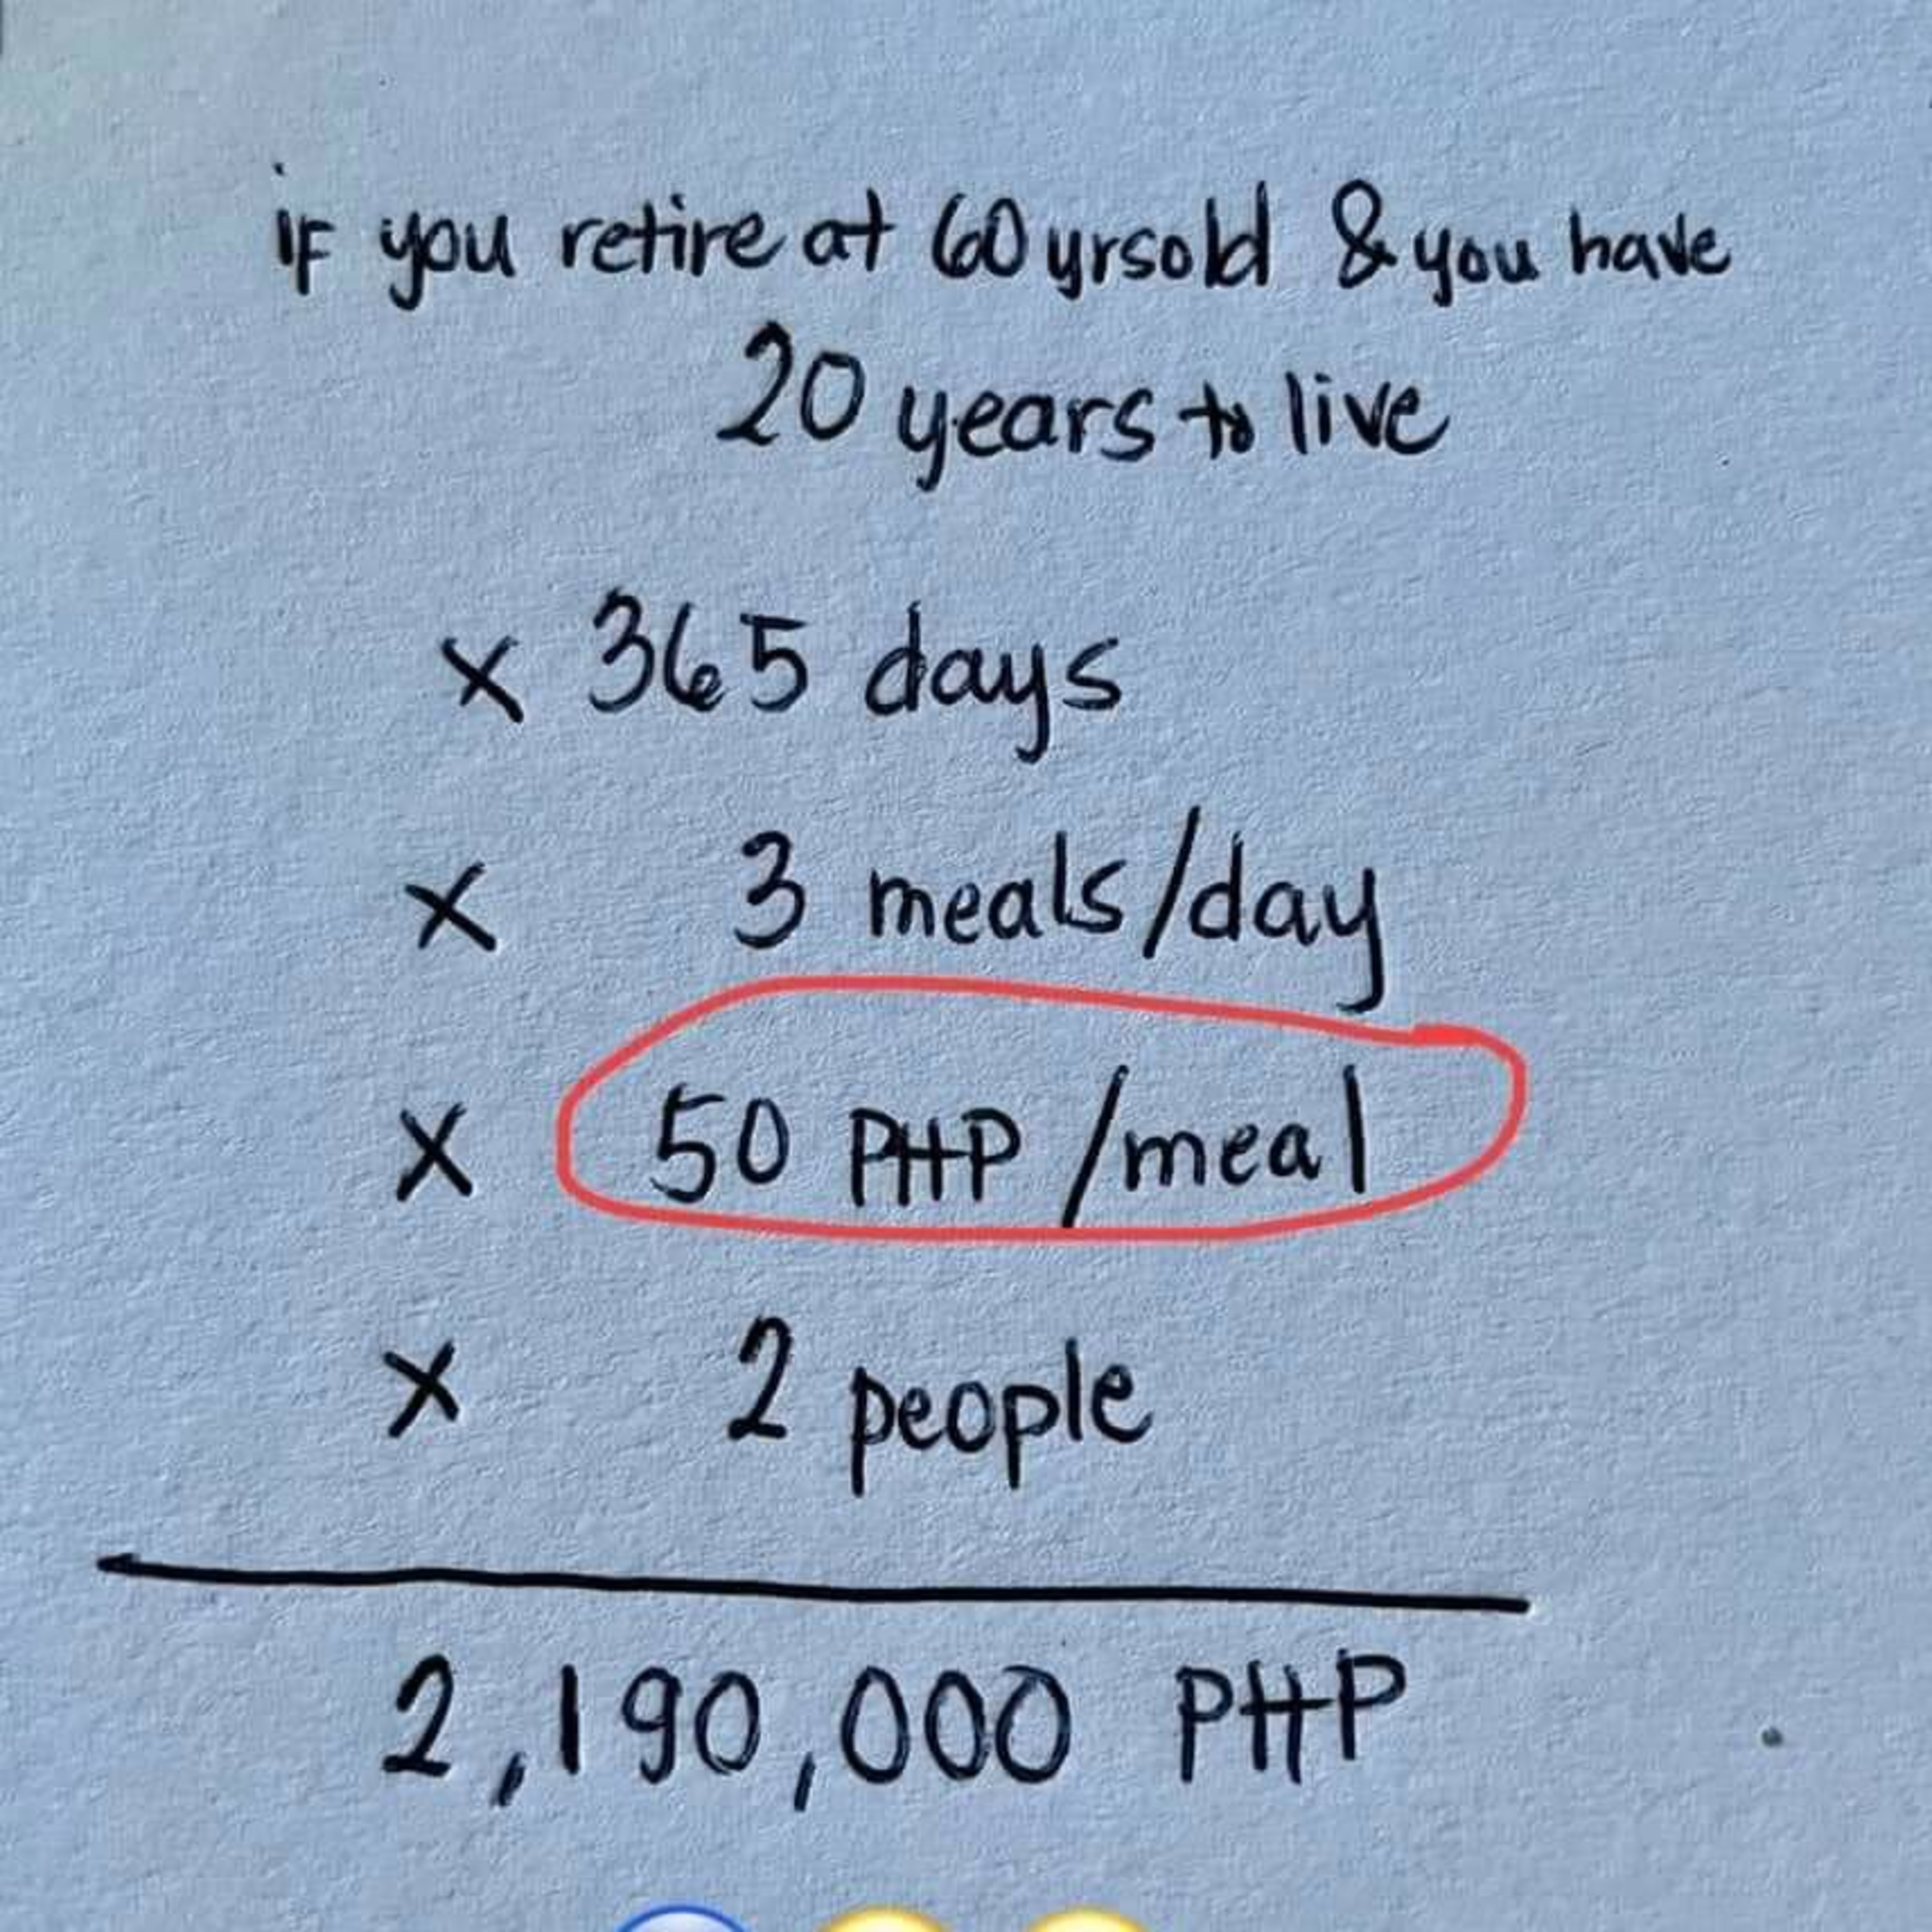 if you retire at 60 yrs old & you have
20 years to live
x 365 days
x 3 meals/day
x 50 PHP /meal
x 2 people
2,190,000 PHP